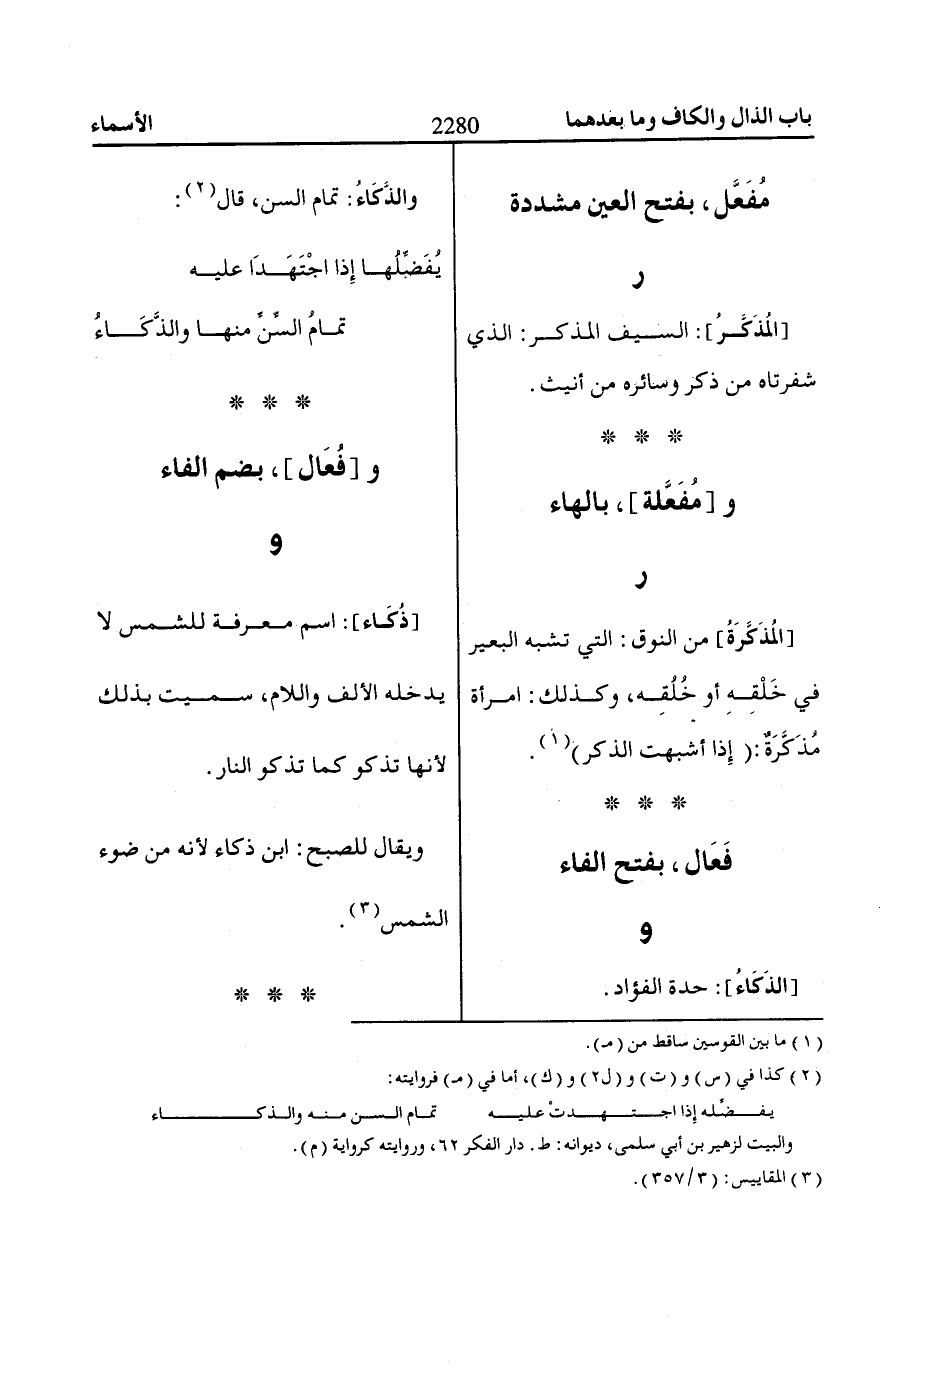 باب الذال والكاف وما بعدهما 2280 الأسماء
مُفَعَّل، بفتح العين مشددة
ر
[المُذَكَّرُ]: السيف المذكر: الذي
شفرتاه من ذكر وسائره من أنيث.
* * *
و [مُفَعَّلة]، بالهاء
ر
[المُذَكَّرَةُ] من النوق: التي تشبه البعير
في خَلْقِه أو خُلُقِه، وكذلك: امرأة
مُذَكَّرَةٌ: (إذا أشبهت الذكر)(١).
* * *
فَعَال، بفتح الفاء
و
[الذَكَاءُ]: حدة الفؤاد.
والذَّكَاءُ: تمام السن، قال(٢):
يُفَضِّلُها إذا اجْتَهَدَا عليه
تمامُ السِّنِّ منها والذَّكَاءُ
* * *
و [فُعَال]، بضم الفاء
و
[ذُكَاء]: اسم معرفة للشمس لا
يدخله الألف واللام، سميت بذلك
لأنها تذكو كما تذكو النار.
ويقال للصبح: ابن ذكاء لأنه من ضوء
الشمس(٣).
* * *
(١) ما بين القوسين ساقط من (مـ).
(٢) كذا في (س) و (ت) و (ل٢) و (ك)، أما في (مـ) فروايته:
يفضِّله إذا اجتهدتْ عليه تمام السن منه والذكاء
والبيت لزهير بن أبي سلمى، ديوانه: ط. دار الفكر ٦٢، وروايته كرواية (م).
(٣) المقاييس: (٣/٣٥٧).